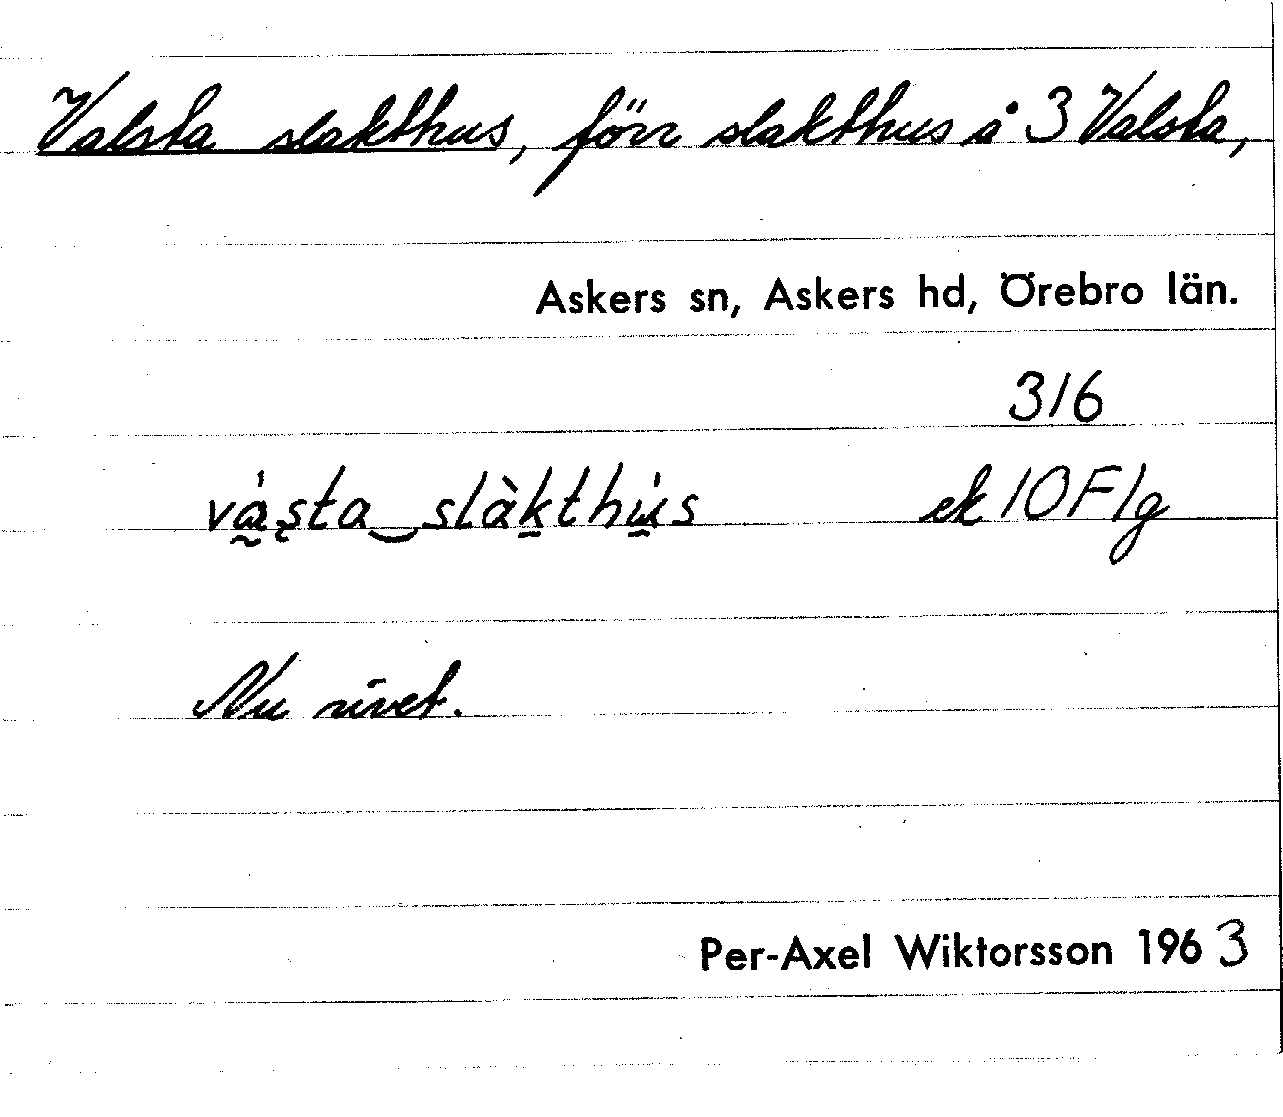 Valsta slakthus, förr slakthus å 3 Valsta,
Askers sn, Askers hd, Örebro län.
316
vá̰ş̨ta‿slàk̠thu̠̍s ek 10F1g
Nu rivet.
Per-Axel Wiktorsson 1963